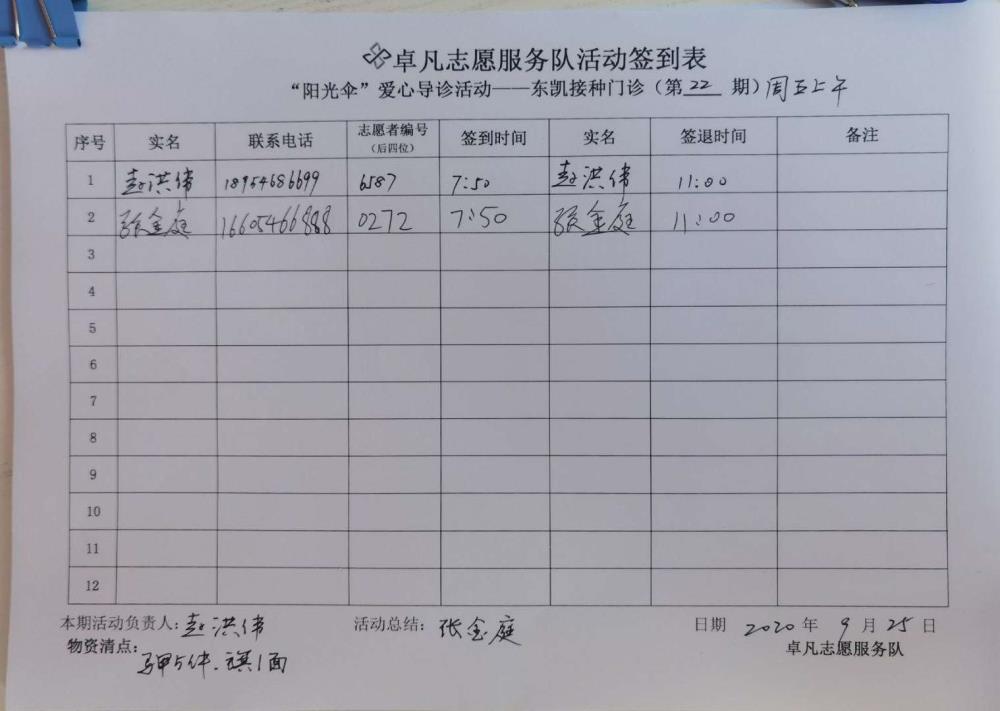 卓凡志愿服务队活动签到表
“阳光伞”爱心导诊活动——东凯接种门诊（第22期）周五上午
序号 实名 联系电话 志愿者编号（后四位） 签到时间 实名 签退时间 备注
1 赵洪伟 18954686699 6587 7:50 赵洪伟 11:00
2 张金庭 16605466888 0272 7:50 张金庭 11:00
3
4
5
6
7
8
9
10
11
12
本期活动负责人：赵洪伟 活动总结：张金庭 日期 2020年9月25日
物资清点： 卓凡志愿服务队
马甲5件、旗1面